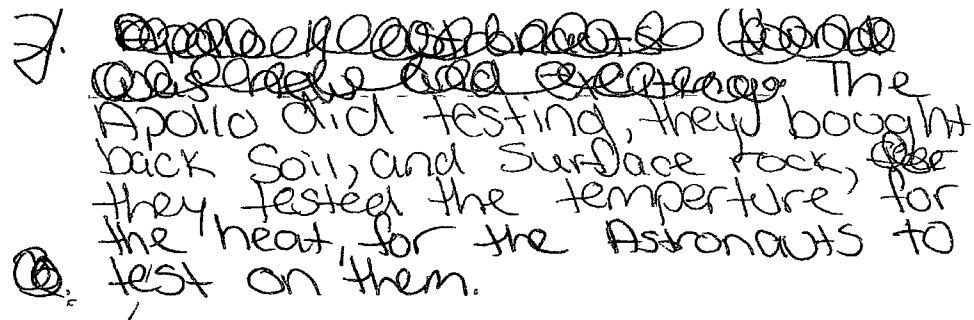 7. The
Apollo did testing, they bought
back soil, and surface rock,
they tested the temperture for
the heat, for the Astronauts to
test on them.